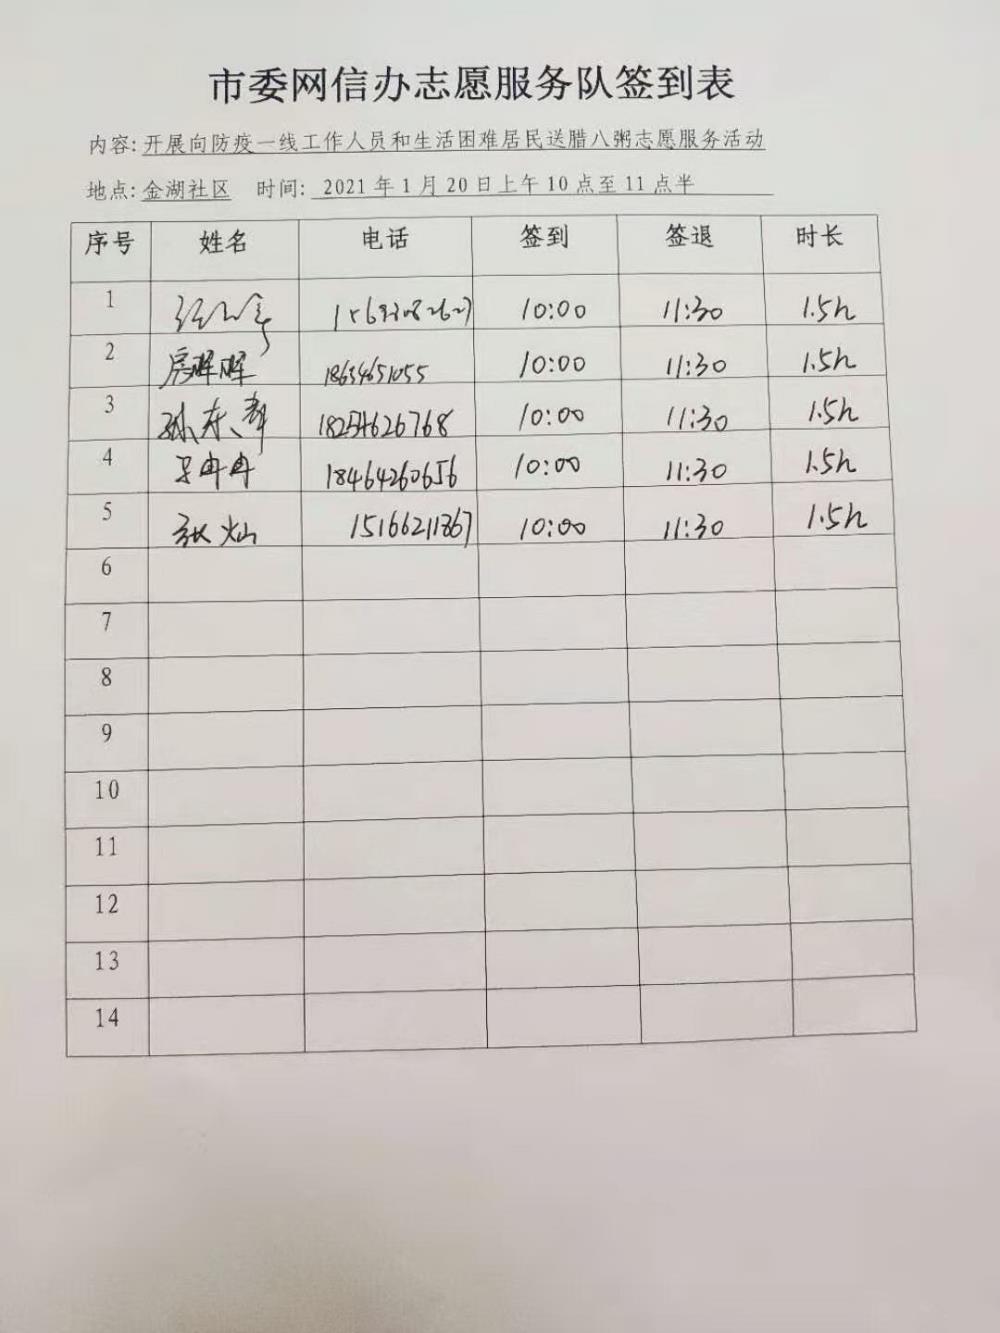 市委网信办志愿服务队签到表
内容: 开展向防疫一线工作人员和生活困难居民送腊八粥志愿服务活动
地点: 金湖社区 时间: 2021年1月20日上午10点至11点半
序号 姓名 电话 签到 签退 时长
1 10:00 11:30 1.5h
2 房晖晖 18654651055 10:00 11:30 1.5h
3 孙东 18254626768 10:00 11:30 1.5h
4 冉冉 18464260656 10:00 11:30 1.5h
5 张灿 15166211867 10:00 11:30 1.5h
6
7
8
9
10
11
12
13
14